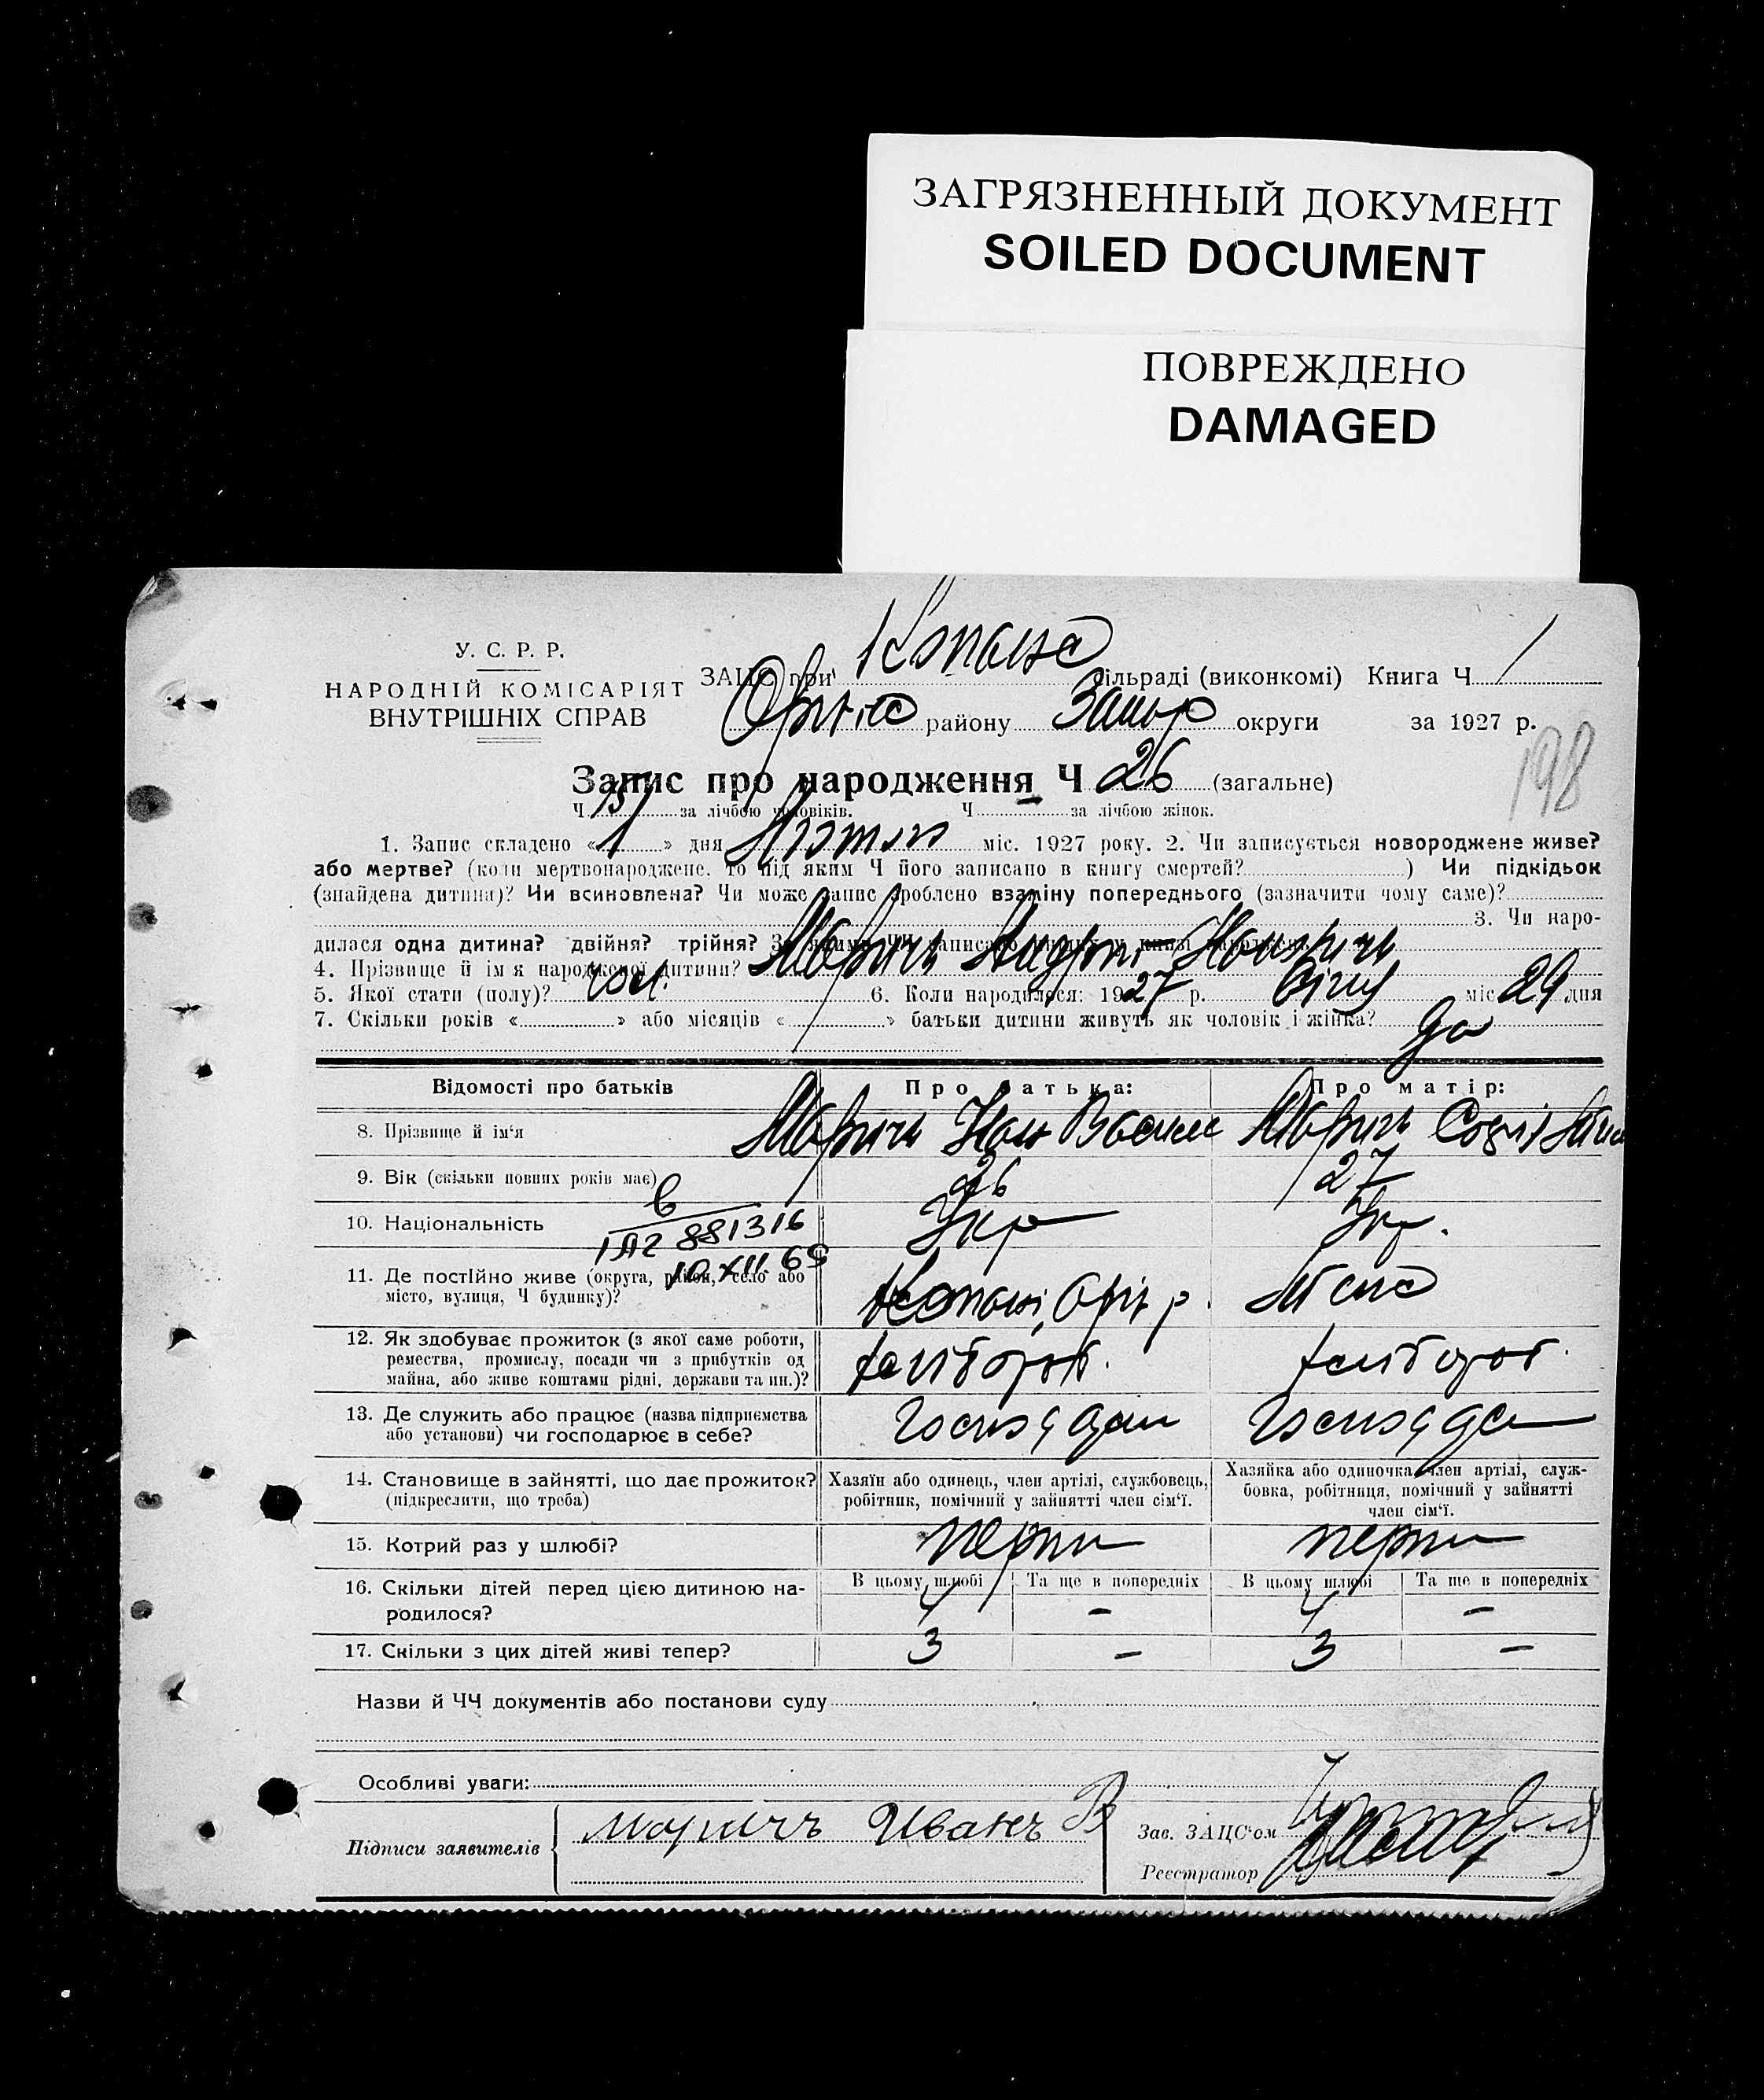 ЗАГРЯЗНЕННЫЙ ДОКУМЕНТ
SOILED DOCUMENT
ПОВРЕЖДЕНО
DAMAGED
У. С. Р. Р.
НАРОДНІЙ КОМІСАРІЯТ
ВНУТРІШНІХ СПРАВ
ЗАЦС при сільраді (виконкомі) Книга Ч 1
району округи за 1927 р.
198
Запис про народження Ч 26 (загальне)
Ч 15 за лічбою чоловіків. Ч за лічбою жінок.
1. Запис складено « 1 » дня міс. 1927 року. 2. Чи записується новороджене живе?
або мертве? (коли мертвонароджене, то під яким Ч його записано в книгу смертей? ) Чи підкідьок
(знайдена дитина)? Чи всиновлена? Чи може запис зроблено взаміну попереднього (зазначити чому саме)?
3. Чи наро-
дилася одна дитина? двійня? трійня?
4. Прізвище й ім'я народженої дитини? Марич
5. Якої стати (полу)? чол. 6. Коли народилося: 1927 р. міс 29 дня
7. Скільки років « » або місяців « » батьки дитини живуть як чоловік і жінка?
Відомості про батьків Про батька: Про матір:
8. Прізвище й ім'я Марич Марич
9. Вік (скільки повних років має) 26 27
10. Національність Укр Укр.
881316
10. XII. 69
11. Де постійно живе (округа, район, село або
місто, вулиця, Ч будинку)?
12. Як здобуває прожиток (з якої саме роботи,
ремества, промислу, посади чи з прибутків од
майна, або живе коштами рідні, держави та ин.)? хлібороб. хлібороб.
13. Де служить або працює (назва підприємства
або установи) чи господарює в себе?
14. Становище в зайнятті, що дає прожиток? Хазяїн або одинець, член артілі, службовець, Хазяйка або одиночка, член артілі, служ-
(підкреслити, що треба) робітник, помічний у зайнятті член сім'ї. бовка, робітниця, помічний у зайнятті
член сім'ї.
15. Котрий раз у шлюбі?
16. Скільки дітей перед цією дитиною на- В цьому шлюбі Та ще в попередніх В цьому шлюбі Та ще в попередніх
родилося? 4 – 4 –
17. Скільки з цих дітей живі тепер? 3 – 3 –
Назви й ЧЧ документів або постанови суду
Особливі уваги:
Підписи заявителів Маричъ Иванъ В
Зав. ЗАЦС'ом
Реєстратор